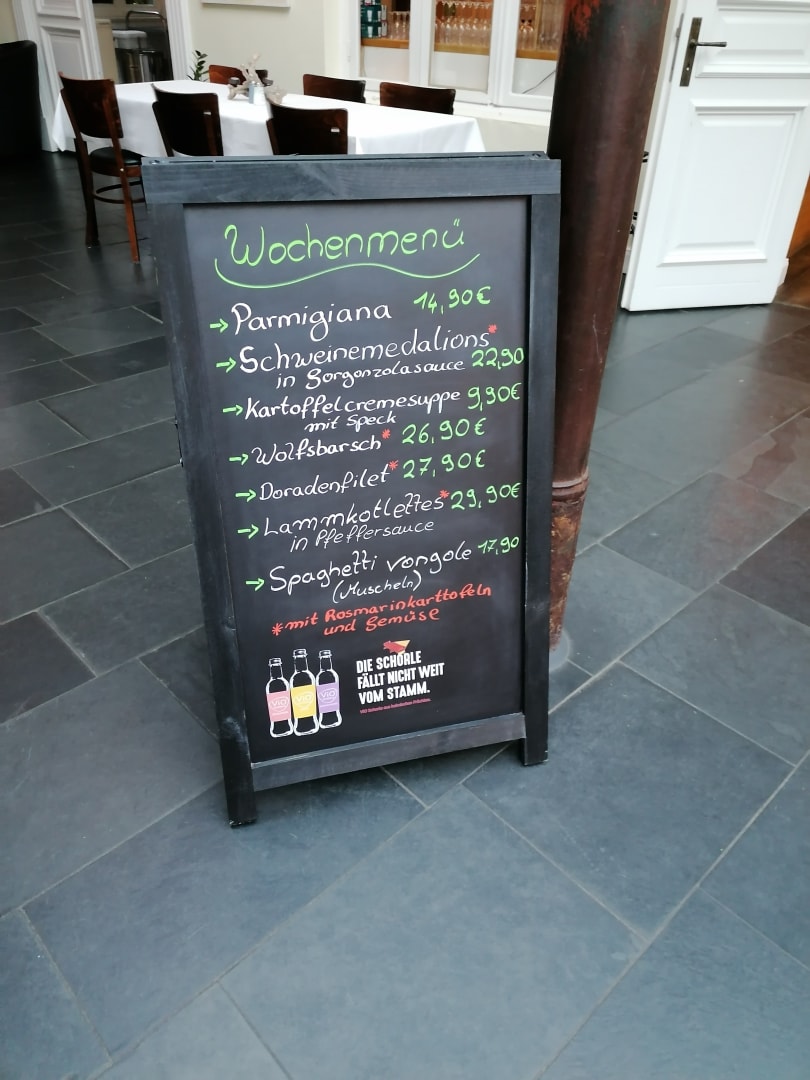 Wochenmenü
→ Parmigiana 14,90€
→ Schweinemedalions* 22,90
in Gorgonzolasauce
→ Kartoffelcremesuppe 9,90€
mit Speck
→ Wolfsbarsch* 26,90€
→ Doradenfilet* 27,90€
→ Lammkotlettes* 29,90€
in Pfeffersauce
→ Spaghetti vongole 17,90
(Muscheln)
*mit Rosmarinkarttofeln
und Gemüse
DIE SCHORLE
FÄLLT NICHT WEIT
VOM STAMM.
ViO ViO ViO